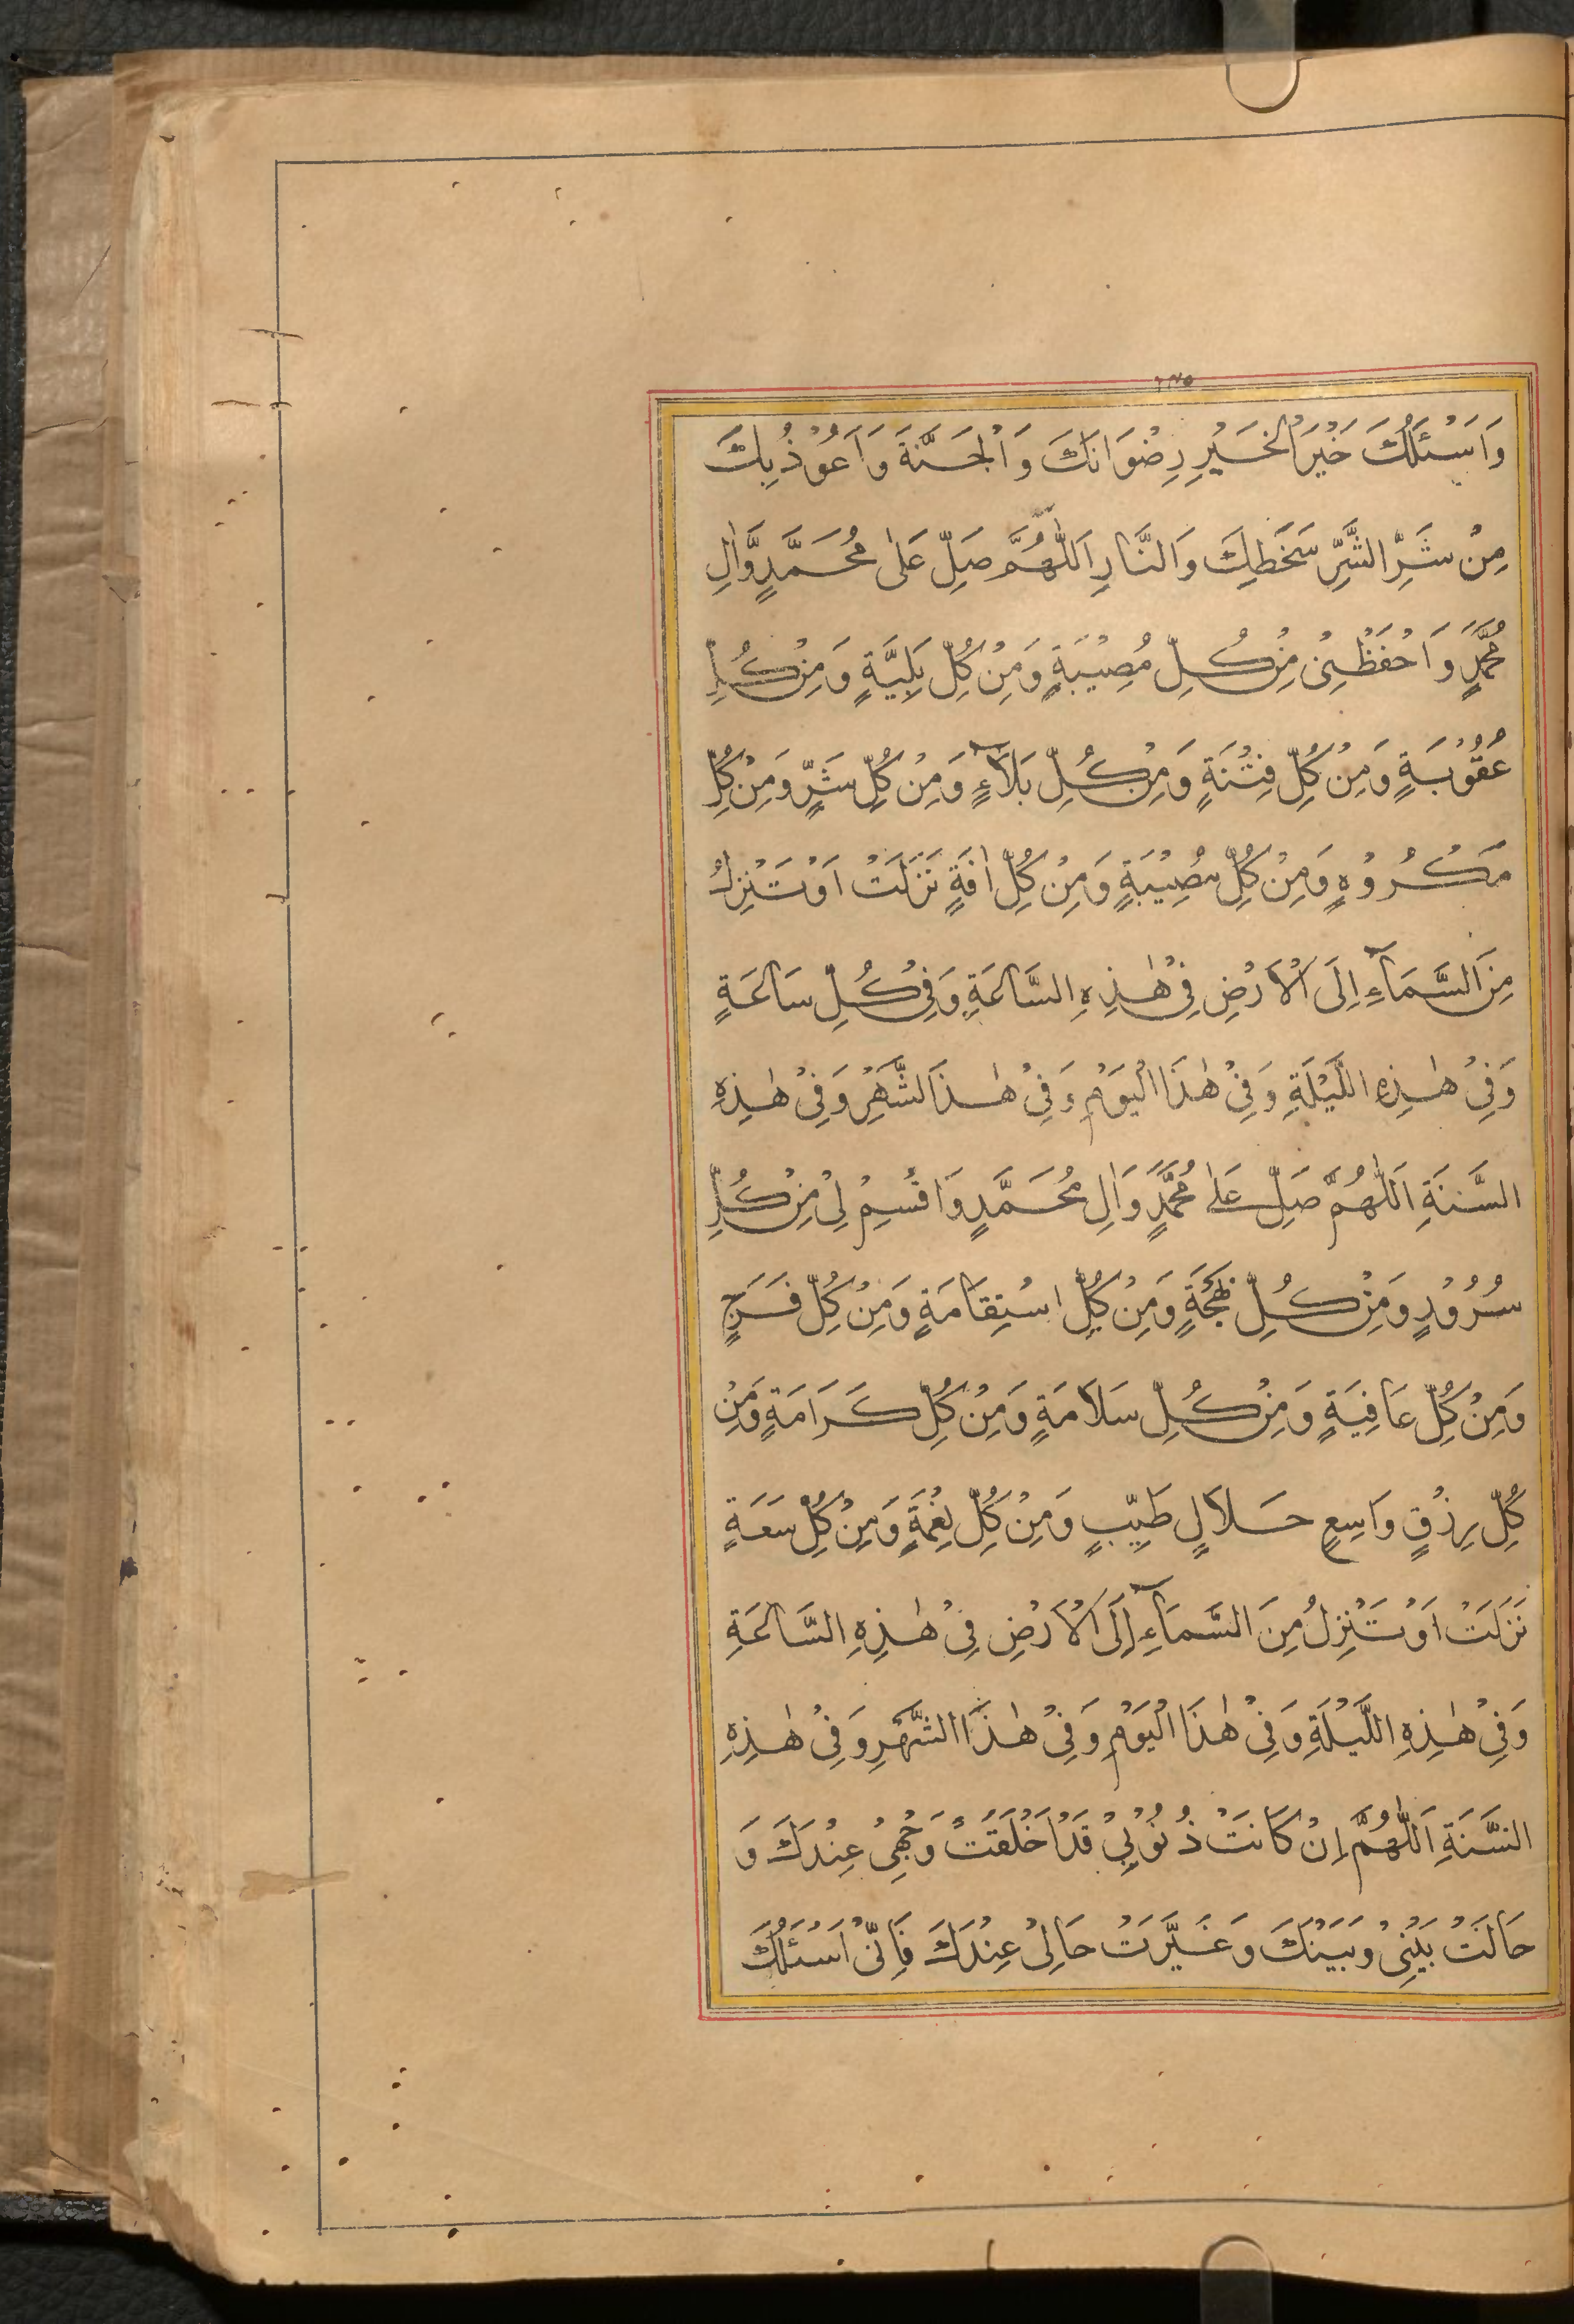 وَاَسْئَلُكَ خَيْرَالْخَيْرِ رِضْوَانَكَ وَالْجَنَّةَ وَاَعُوْذُبِكَ
مِنْ شَرِّ الشَّرِّ سَخَطِكَ وَالنَّارِ اَللّٰهُمَّ صَلِّ عَلٰى مُحَمَّدٍ وَّاٰلِ
مُحَمَّدٍ وَاحْفَظْنِيْ مِنْ كُلِّ مُصِيْبَةٍ وَمِنْ كُلِّ بَلِيَّةٍ وَمِنْ كُلِّ
عُقُوْبَةٍ وَمِنْ كُلِّ فِتْنَةٍ وَمِنْ كُلِّ بَلَآءٍ وَمِنْ كُلِّ شَرٍّ وَمِنْ كُلِّ
مَكْرُوْهٍ وَمِنْ كُلِّ مُصِيْبَةٍ وَمِنْ كُلِّ اٰفَةٍ نَزَلَتْ اَوْ تَنْزِلُ
مِنَ السَّمَآءِ اِلَى الْاَرْضِ فِيْ هٰذِهِ السَّاعَةِ وَفِيْ كُلِّ سَاعَةٍ
وَفِيْ هٰذِهِ اللَّيْلَةِ وَفِيْ هٰذَا الْيَوْمِ وَفِيْ هٰذَالشَّهْرِ وَفِيْ هٰذِهِ
السَّنَةِ اَللّٰهُمَّ صَلِّ عَلٰى مُحَمَّدٍ وَاٰلِ مُحَمَّدٍ وَاقْسِمْ لِيْ مِنْ كُلِّ
سُرُوْرٍ وَمِنْ كُلِّ بَهْجَةٍ وَمِنْ كُلِّ اسْتِقَامَةٍ وَمِنْ كُلِّ فَرَجٍ
وَمِنْ كُلِّ عَافِيَةٍ وَمِنْ كُلِّ سَلَامَةٍ وَمِنْ كُلِّ كَرَامَةٍ وَمِنْ
كُلِّ رِزْقٍ وَاسِعٍ حَلَالٍ طَيِّبٍ وَمِنْ كُلِّ نِعْمَةٍ وَمِنْ كُلِّ سَعَةٍ
نَزَلَتْ اَوْ تَنْزِلُ مِنَ السَّمَآءِ اِلَى الْاَرْضِ فِيْ هٰذِهِ السَّاعَةِ
وَفِيْ هٰذِهِ اللَّيْلَةِ وَفِيْ هٰذَا الْيَوْمِ وَفِيْ هٰذَا الشَّهْرِ وَفِيْ هٰذِهِ
السَّنَةِ اَللّٰهُمَّ اِنْ كَانَتْ ذُنُوْبِيْ قَدْ اَخْلَقَتْ وَجْهِيْ عِنْدَكَ وَ
حَالَتْ بَيْنِيْ وَبَيْنَكَ وَغَيَّرَتْ حَالِيْ عِنْدَكَ فَاِنِّيْ اَسْئَلُكَ